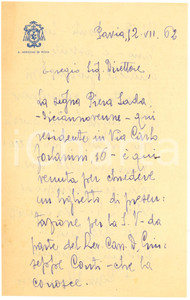 IL VESCOVO DI PAVIA
Pavia, 12. VII. 62
Egregio Sig. Direttore,
La sig.na Piera Sada,
- diciannovenne - qui
residente in Via Carlo
10 - è qui
venuta per chiedere
un biglietto di presen=
tazione per la S. V. da
parte del Rev. Can. D. Giu=
seppe Conti - che la
conosce.